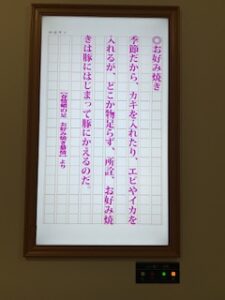 ◎お好み焼き
季節だから、カキを入れたり、エビやイカを
入れるが、どこか物足らず、所詮、お好み焼
きは豚にはじまって豚にかえるのだ。
お好み焼き
より